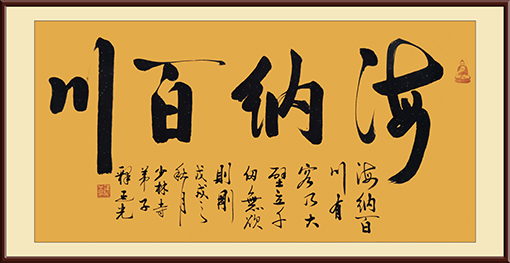 海纳百川
海纳百
川有
容乃大
壁立千
仞無欲
則剛
戊戌之
秋月
少林寺
弟子
釋延光